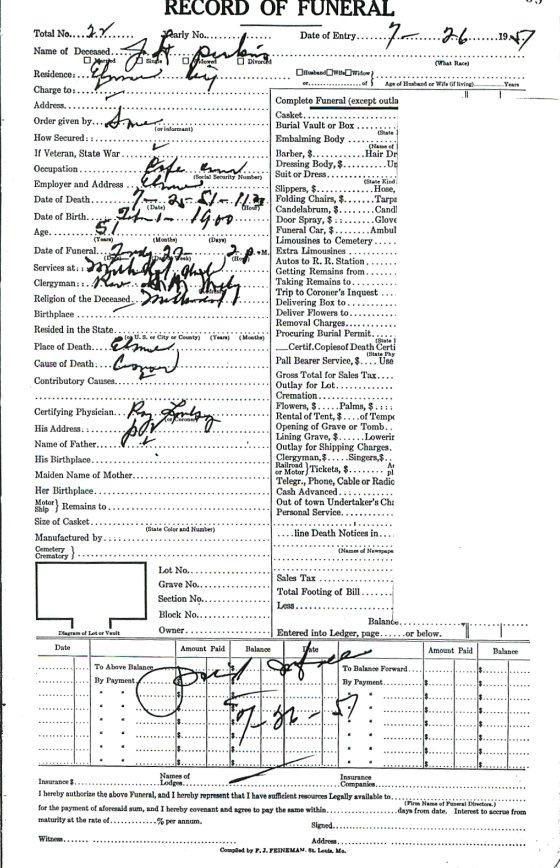 RECORD OF FUNERAL
Total No. 22 Yearly No. Date of Entry 7- 26 1957
Name of Deceased J H Perkins
Married Single Widowed Divorced (What Race)
Residence: Elmo Ky Husband Wife Widow
or of Age of Husband or Wife (if living) Years
Charge to:
Address
Order given by Same
(or informant)
How Secured:
If Veteran, State War
Occupation
(Social Security Number)
Employer and Address Elmo
Date of Death 7-21-51-11
(Date) (Hour)
Date of Birth Feb-1-1900
Age 51
(Years) (Months) (Days)
Date of Funeral 2 P. M.
Services at:
Clergyman: Rev
Religion of the Deceased Methodist
Birthplace
Resided in the State
(or U. S. or City or County) (Years) (Months)
Place of Death Elmo
Cause of Death
Contributory Causes
Certifying Physician Roy
(or Coroner)
His Address
Name of Father
His Birthplace
Maiden Name of Mother
Her Birthplace
Motor Ship } Remains to
Size of Casket
(State Color and Number)
Manufactured by
Cemetery Crematory }
Lot No.
Grave No.
Section No.
Block No.
Owner
Diagram of Lot or Vault
Complete Funeral (except outla
Casket
Burial Vault or Box
(State
Embalming Body
(Name of
Barber, $ Hair Dr
Dressing Body, Un
Suit or Dress
(State Kind
Slippers, $ Hose,
Folding Chairs, $ Tarpa
Candelabrum, $ Candl
Door Spray, $ Glove
Funeral Car, $ Ambul
Limousines to Cemetery
Extra Limousines
Autos to R. R. Station
Getting Remains from
Taking Remains to
Trip to Coroner's Inquest
Delivering Box to
Deliver Flowers to
Removal Charges
Procuring Burial Permit
(State
Certif. Copies of Death Certi
(State Phy
Pall Bearer Service, $ Use
Gross Total for Sales Tax
Outlay for Lot
Cremation
Flowers, $ Palms, $
Rental of Tent, $ of Tempo
Opening of Grave or Tomb
Lining Grave, $ Lowerin
Outlay for Shipping Charges
Clergyman, $ Singers, $
Railroad or Motor } Tickets, $ Ai pl
Telegr., Phone, Cable or Radio
Cash Advanced
Out of town Undertaker's Cha
Personal Service
line Death Notices in
(Names of Newspape
Sales Tax
Total Footing of Bill
Less
Balance
Entered into Ledger, page or below.
Date Amount Paid Balance Date Amount Paid Balance
To Above Balance To Balance Forward
By Payment By Payment
Paid
7-26-57
Insurance $ Names of Lodges Insurance Companies
I hereby authorize the above Funeral, and I hereby represent that I have sufficient resources Legally available to
(Firm Name of Funeral Directors.)
for the payment of aforesaid sum, and I hereby covenant and agree to pay the same within days from date. Interest to accrue from
maturity at the rate of % per annum. Signed
Witness Address
Compiled by F. J. FEINEMAN, St. Louis, Mo.